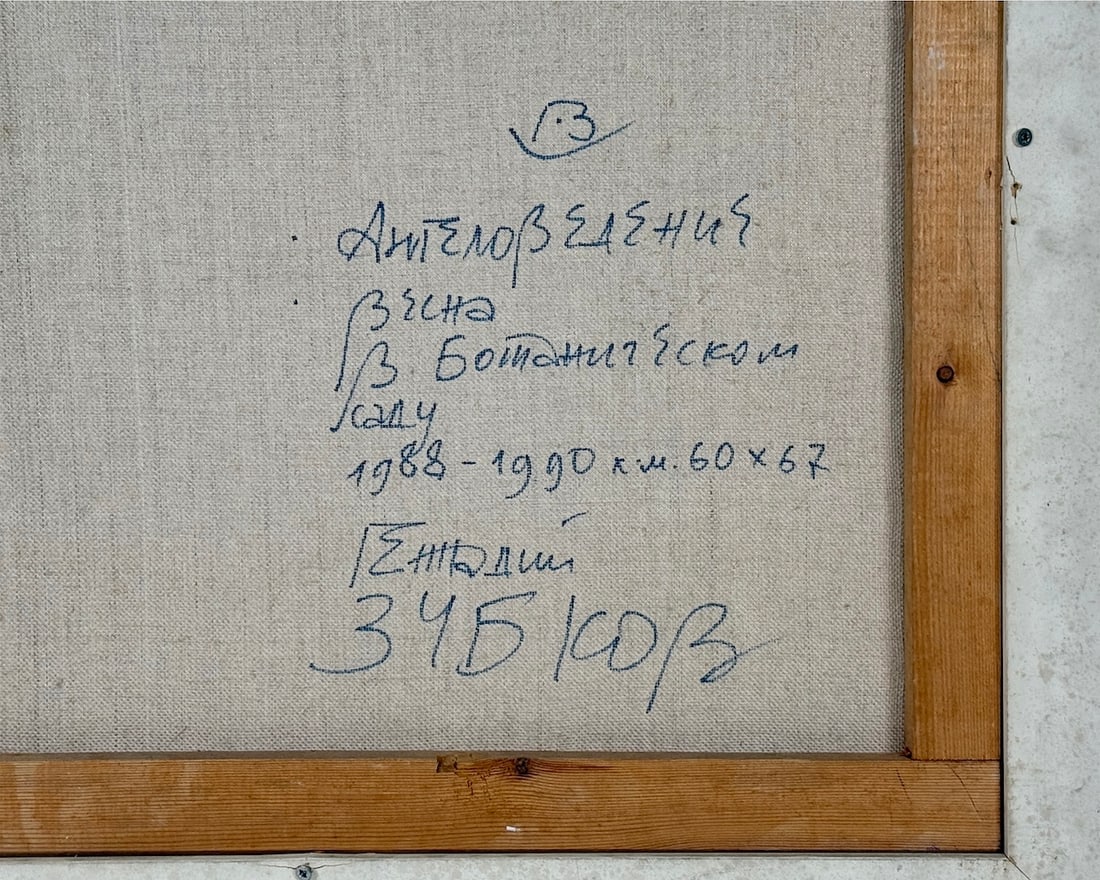 Г·З
Ангеловедение
Весна
В Ботаническом
саду
1988-1990 х.м. 60×67
Геннадий
ЗУБКОВ